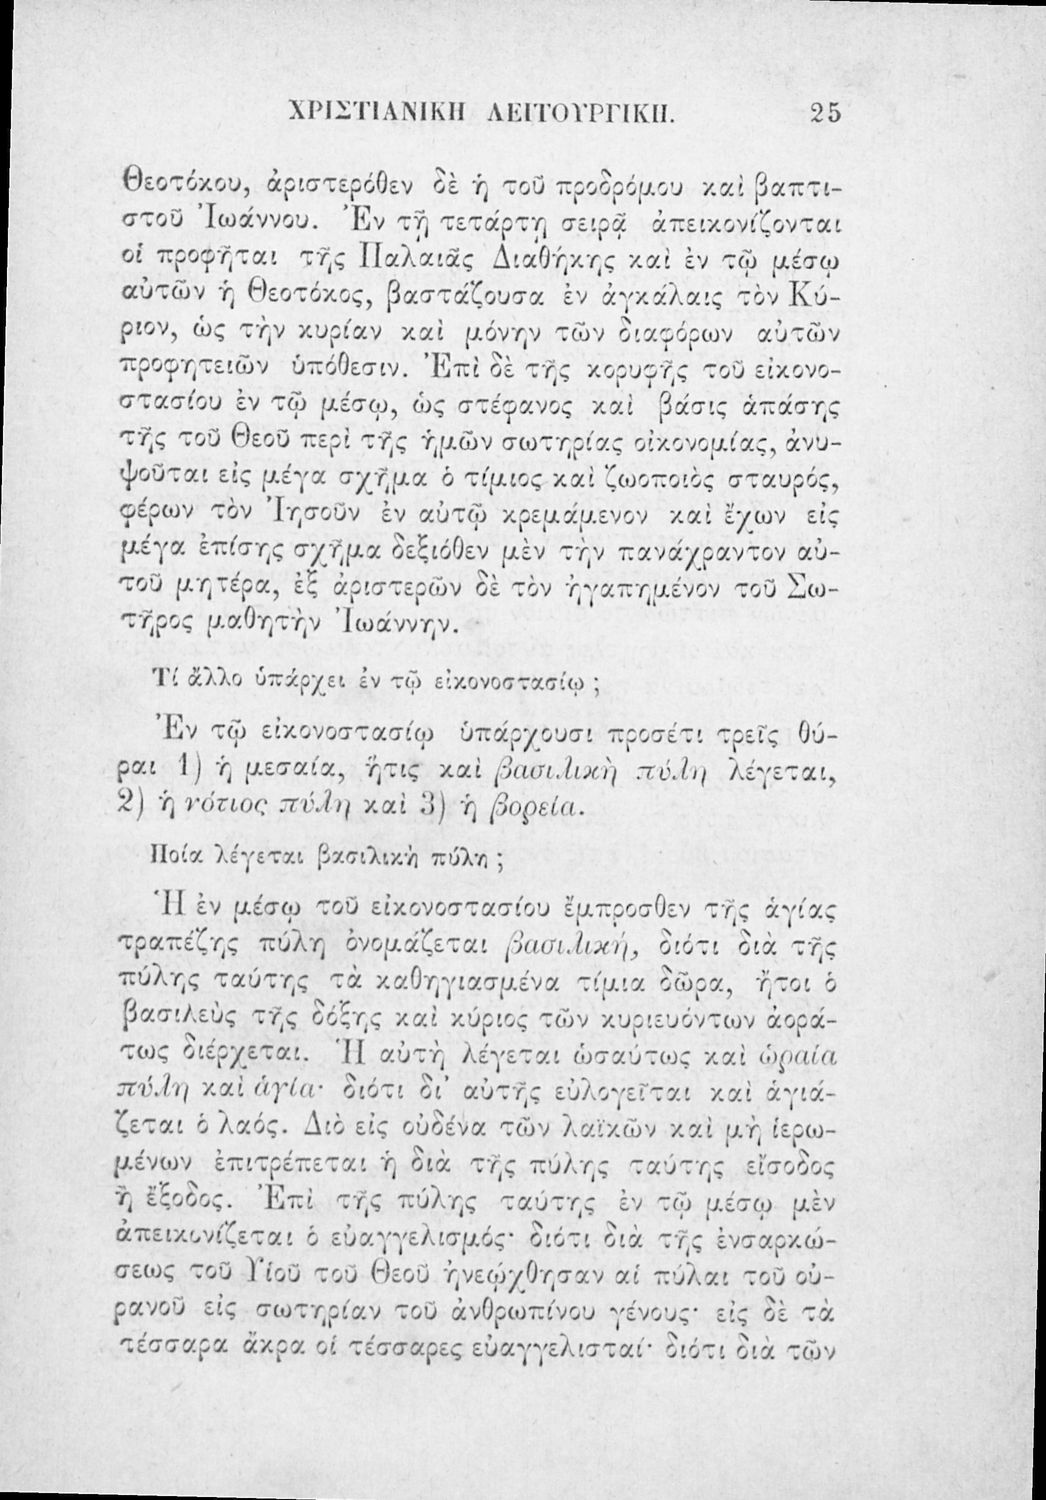 ΧΡΙΣΤΙΑΝΙΚΗ ΛΕΙΤΟΥΡΓΙΚΗ. 25
Θεοτόκου, ἀριστερόθεν δὲ ἡ τοῦ προδρόμου καὶ βαπτι-
στοῦ Ἰωάννου. Ἐν τῇ τετάρτῃ σειρᾷ ἀπεικονίζονται
οἱ προφῆται τῆς Παλαιᾶς Διαθήκης καὶ ἐν τῷ μέσῳ
αὐτῶν ἡ Θεοτόκος, βαστάζουσα ἐν ἀγκάλαις τὸν Κύ-
ριον, ὡς τὴν κυρίαν καὶ μόνην τῶν διαφόρων αὐτῶν
προφητειῶν ὑπόθεσιν. Ἐπὶ δὲ τῆς κορυφῆς τοῦ εἰκονο-
στασίου ἐν τῷ μέσῳ, ὡς στέφανος καὶ βάσις ἁπάσης
τῆς τοῦ Θεοῦ περὶ τῆς ἡμῶν σωτηρίας οἰκονομίας, ἀνυ-
ψοῦται εἰς μέγα σχῆμα ὁ τίμιος καὶ ζωοποιὸς σταυρός,
φέρων τὸν Ἰησοῦν ἐν αὐτῷ κρεμάμενον καὶ ἔχων εἰς
μέγα ἐπίσης σχῆμα δεξιόθεν μὲν τὴν πανάχραντον αὐ-
τοῦ μητέρα, ἐξ ἀριστερῶν δὲ τὸν ἠγαπημένον τοῦ Σω-
τῆρος μαθητὴν Ἰωάννην.
Τί ἄλλο ὑπάρχει ἐν τῷ εἰκονοστασίῳ ;
Ἐν τῷ εἰκονοστασίῳ ὑπάρχουσι προσέτι τρεῖς θύ-
ραι 1) ἡ μεσαία, ἥτις καὶ βασιλικὴ πύλη λέγεται,
2) ἡ νότιος πύλη καὶ 3) ἡ βορεία.
Ποία λέγεται βασιλικὴ πύλη ;
Ἡ ἐν μέσῳ τοῦ εἰκονοστασίου ἔμπροσθεν τῆς ἁγίας
τραπέζης πύλη ὀνομάζεται βασιλική, διότι διὰ τῆς
πύλης ταύτης τὰ καθηγιασμένα τίμια δῶρα, ἤτοι ὁ
βασιλεὺς τῆς δόξης καὶ κύριος τῶν κυριευόντων ἀορά-
τως διέρχεται. Ἡ αὐτὴ λέγεται ὡσαύτως καὶ ὡραία
πύλη καὶ ἁγία· διότι δι' αὐτῆς εὐλογεῖται καὶ ἁγιά-
ζεται ὁ λαός. Διὸ εἰς οὐδένα τῶν λαϊκῶν καὶ μὴ ἱερω-
μένων ἐπιτρέπεται ἡ διὰ τῆς πύλης ταύτης εἴσοδος
ἢ ἔξοδος. Ἐπὶ τῆς πύλης ταύτης ἐν τῷ μέσῳ μὲν
ἀπεικονίζεται ὁ εὐαγγελισμός· διότι διὰ τῆς ἐνσαρκώ-
σεως τοῦ Υἱοῦ τοῦ Θεοῦ ἠνεῴχθησαν αἱ πύλαι τοῦ οὐ-
ρανοῦ εἰς σωτηρίαν τοῦ ἀνθρωπίνου γένους· εἰς δὲ τὰ
τέσσαρα ἄκρα οἱ τέσσαρες εὐαγγελισταί· διότι διὰ τῶν